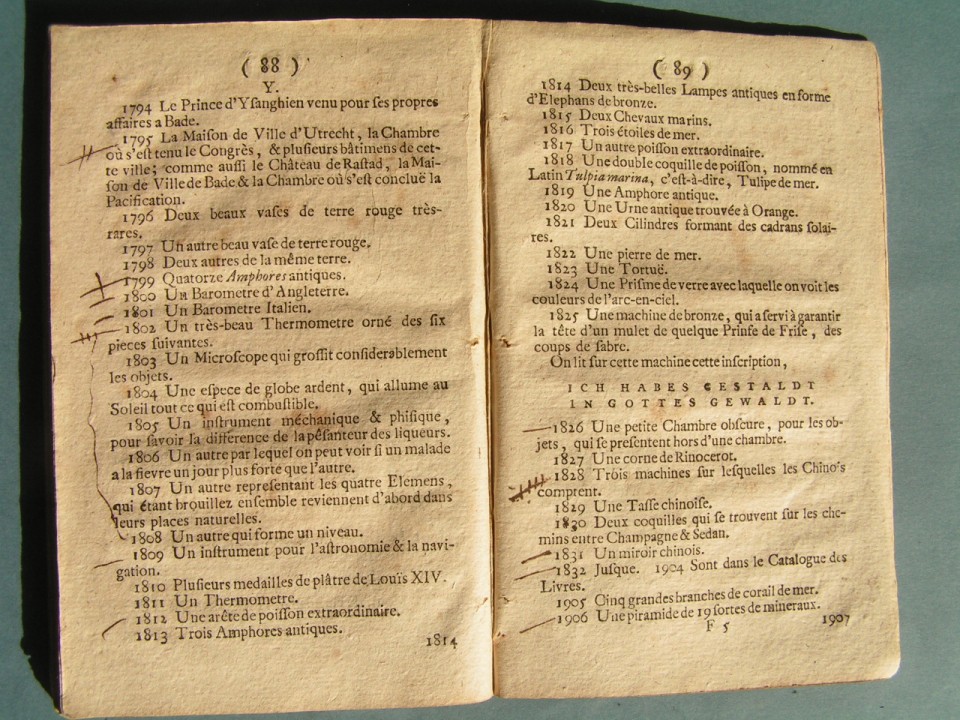 ( 88 )
Y.
1794 Le Prince d'Ysanghien venu pour ses propres
affaires a Bade.
1795 La Maison de Ville d'Utrecht, la Chambre
où s'est tenu le Congrès, & plusieurs bâtimens de cet-
te ville; comme aussi le Château de Rastad, la Mai-
son de Ville de Bade & la Chambre où s'est concluë la
Pacification.
1796 Deux beaux vases de terre rouge très-
rares.
1797 Un autre beau vase de terre rouge.
1798 Deux autres de la même terre.
1799 Quatorze Amphores antiques.
1800 Un Barometre d'Angleterre.
1801 Un Barometre Italien.
1802 Un très-beau Thermometre orné des six
pieces suivantes.
1803 Un Microscope qui grossit considerablement
les objets.
1804 Une espece de globe ardent, qui allume au
Soleil tout ce qui est combustible.
1805 Un instrument méchanique & phisique,
pour savoir la difference de la pésanteur des liqueurs.
1806 Un autre par lequel on peut voir si un malade
a la fievre un jour plus forte que l'autre.
1807 Un autre representant les quatre Elemens,
qui étant brouillez ensemble reviennent d'abord dans
leurs places naturelles.
1808 Un autre qui forme un niveau.
1809 Un instrument pour l'astronomie & la navi-
gation.
1810 Plusieurs medailles de plâtre de Louïs XIV.
1811 Un Thermometre.
1812 Une arête de poisson extraordinaire.
1813 Trois Amphores antiques.
1814
( 89 )
1814 Deux très-belles Lampes antiques en forme
d'Elephans de bronze.
1815 Deux Chevaux marins.
1816 Trois étoiles de mer.
1817 Un autre poisson extraordinaire.
1818 Une double coquille de poisson, nommé en
Latin Tulpia marina, c'est-à-dire, Tulipe de mer.
1819 Une Amphore antique.
1820 Une Urne antique trouvée à Orange.
1821 Deux Cilindres formant des cadrans solai-
res.
1822 Une pierre de mer.
1823 Une Tortuë.
1824 Une Prisme de verre avec laquelle on voit les
couleurs de l'arc-en-ciel.
1825 Une machine de bronze, qui a servi à garantir
la tête d'un mulet de quelque Prinse de Frise, des
coups de sabre.
On lit sur cette machine cette inscription,
ICH HABES GESTALDT
IN GOTTES GEWALDT.
1826 Une petite Chambre obscure, pour les ob-
jets, qui se presentent hors d'une chambre.
1827 Une corne de Rinocerot.
1828 Trois machines sur lesquelles les Chino's
comptent.
1829 Une Tasse chinoise.
1830 Deux coquilles qui se trouvent sur les che-
mins entre Champagne & Sedan.
1831 Un miroir chinois.
1832 Jusque. 1904 Sont dans le Catalogue des
Livres.
1905 Cinq grandes branches de corail de mer.
1906 Une piramide de 19 sortes de mineraux.
F 5 1907